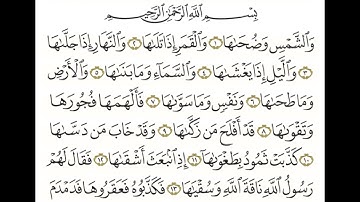 بِسْمِ اللَّهِ الرَّحْمَٰنِ الرَّحِيمِ
وَالشَّمْسِ وَضُحَىٰهَا ۝١ وَالْقَمَرِ إِذَا تَلَىٰهَا ۝٢ وَالنَّهَارِ إِذَا جَلَّىٰهَا
۝٣ وَاللَّيْلِ إِذَا يَغْشَىٰهَا ۝٤ وَالسَّمَاءِ وَمَا بَنَىٰهَا ۝٥ وَالْأَرْضِ
وَمَا طَحَىٰهَا ۝٦ وَنَفْسٍ وَمَا سَوَّىٰهَا ۝٧ فَأَلْهَمَهَا فُجُورَهَا
وَتَقْوَىٰهَا ۝٨ قَدْ أَفْلَحَ مَن زَكَّىٰهَا ۝٩ وَقَدْ خَابَ مَن دَسَّىٰهَا
۝١٠ كَذَّبَتْ ثَمُودُ بِطَغْوَىٰهَا ۝١١ إِذِ انبَعَثَ أَشْقَىٰهَا ۝١٢ فَقَالَ لَهُمْ
رَسُولُ اللَّهِ نَاقَةَ اللَّهِ وَسُقْيَىٰهَا ۝١٣ فَكَذَّبُوهُ فَعَقَرُوهَا فَدَمْدَمَ